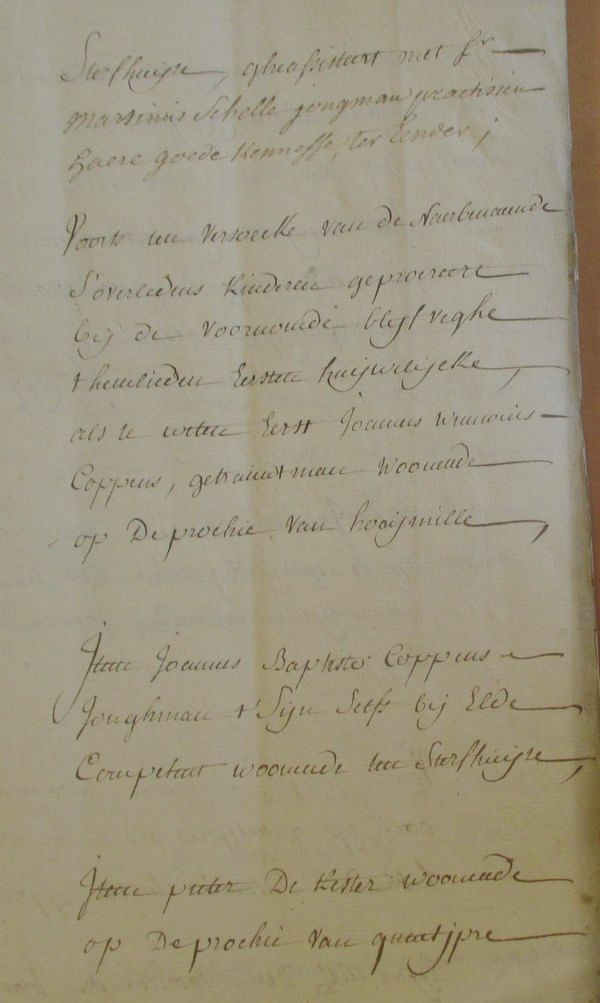 Sterfhuijse, gheassisteert met Sr
Martinus Schelle jongman practisien
haere goede kennesse, ter Eender;
Voorts ten versoecke van de Naerbenaemde
s'overledens kinderen geprocreert
bij de voornomde blijfveghe
t'hemlieden Eersten huijwelijcke,
als te weten Eerst Joannes
Coppens, getrauwt man woonende
op De prochie van hooijmille,
Item Joannes Baptiste Coppens
Jonghman t'Sijn Selfs bij Elde
Competent woonende ten Sterfhuijse,
Item pieter De Kester woonende
op De prochie van quaetjpre